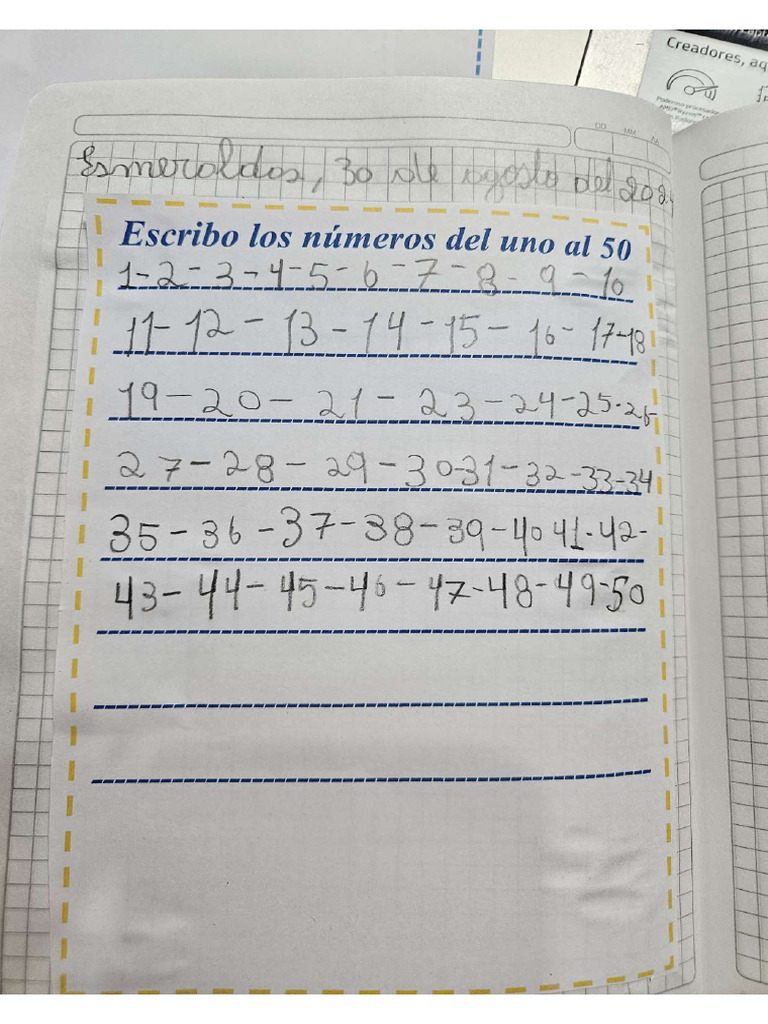 Creadores, aq
DD MM AA
Esmeraldas, 30 de agosto del 202
Escribo los números del uno al 50
1-2-3-4-5-6-7-8-9-10
11-12-13-14-15-16-17-18
19-20-21-23-24-25-26
27-28-29-3031-32-33-34
35-36-37-38-39-40 41-42-
43-44-45-46-47-48-49-50